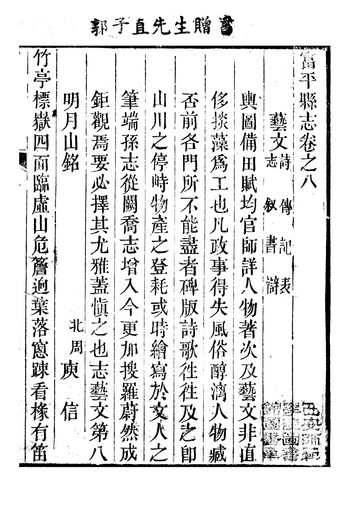 郭子直先生贈書
富平縣志卷之八
藝文詩傳記表
志敘書辯
輿圖備田賦均官師詳人物著次及藝文非直
侈掞藻爲工也凡政事得失風俗醇漓人物臧
否前各門所不能盡者碑版詩歌徃徃及之即
山川之停峙物產之登耗或時繪寫於文人之
筆端孫志從闕喬志增入今更加搜羅蔚然成
鉅觀焉要必擇其尤雅蓋慎之也志藝文第八
明月山銘
北周庾信
竹亭標嶽四面臨虛山危簷迥葉落窻疎看椽有笛